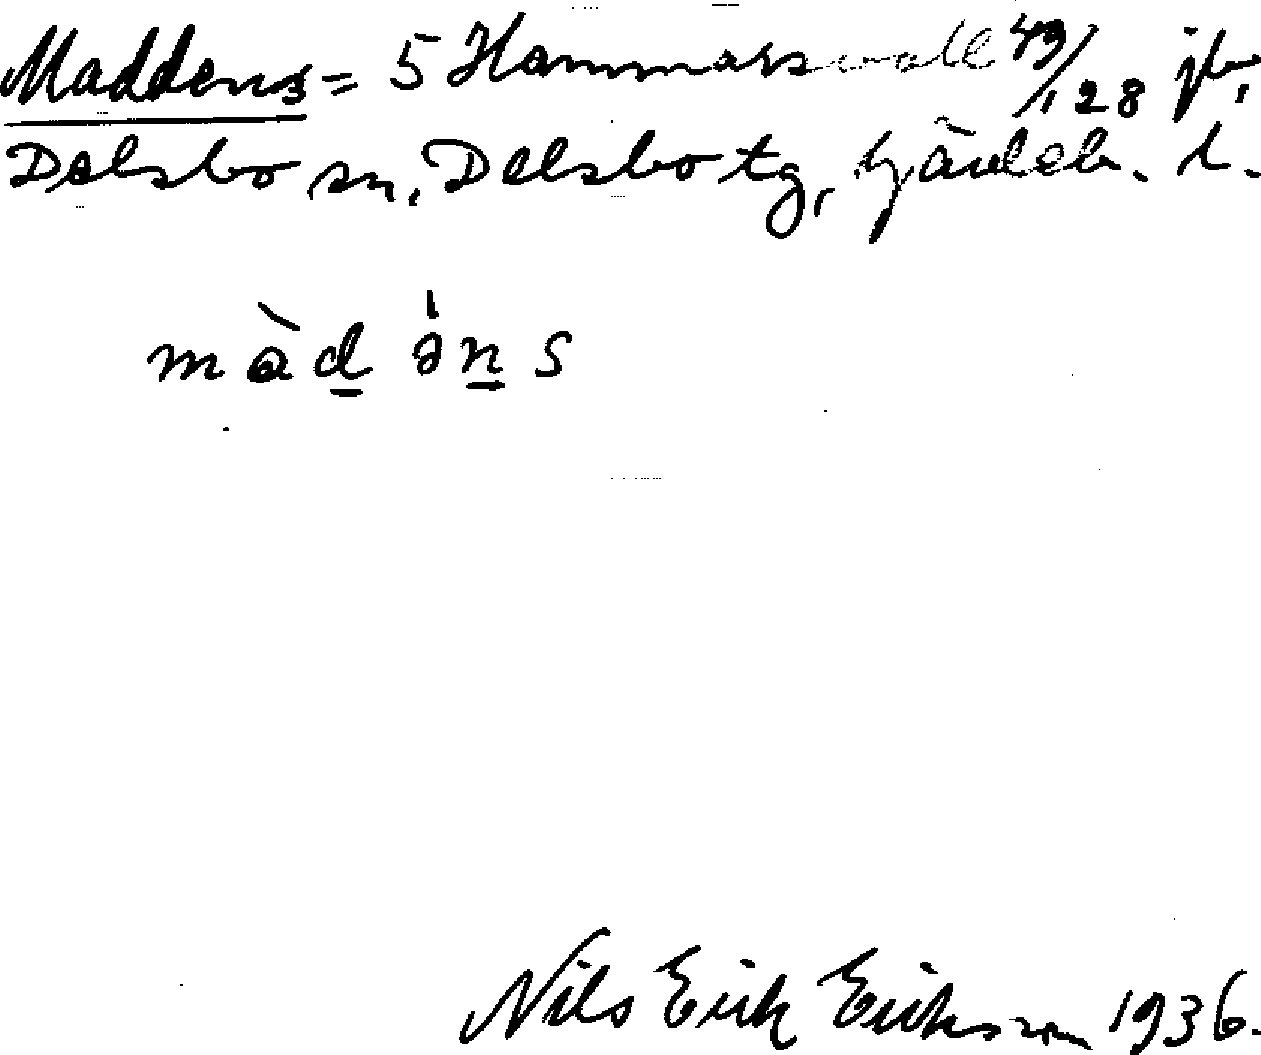 Maddens = 5 Hammarsvall 49/128 jb,
Delsbo sn, Delsbo tg, Gävleb. l.
màd ə́n s
Nils Erik Eriksson 1936.